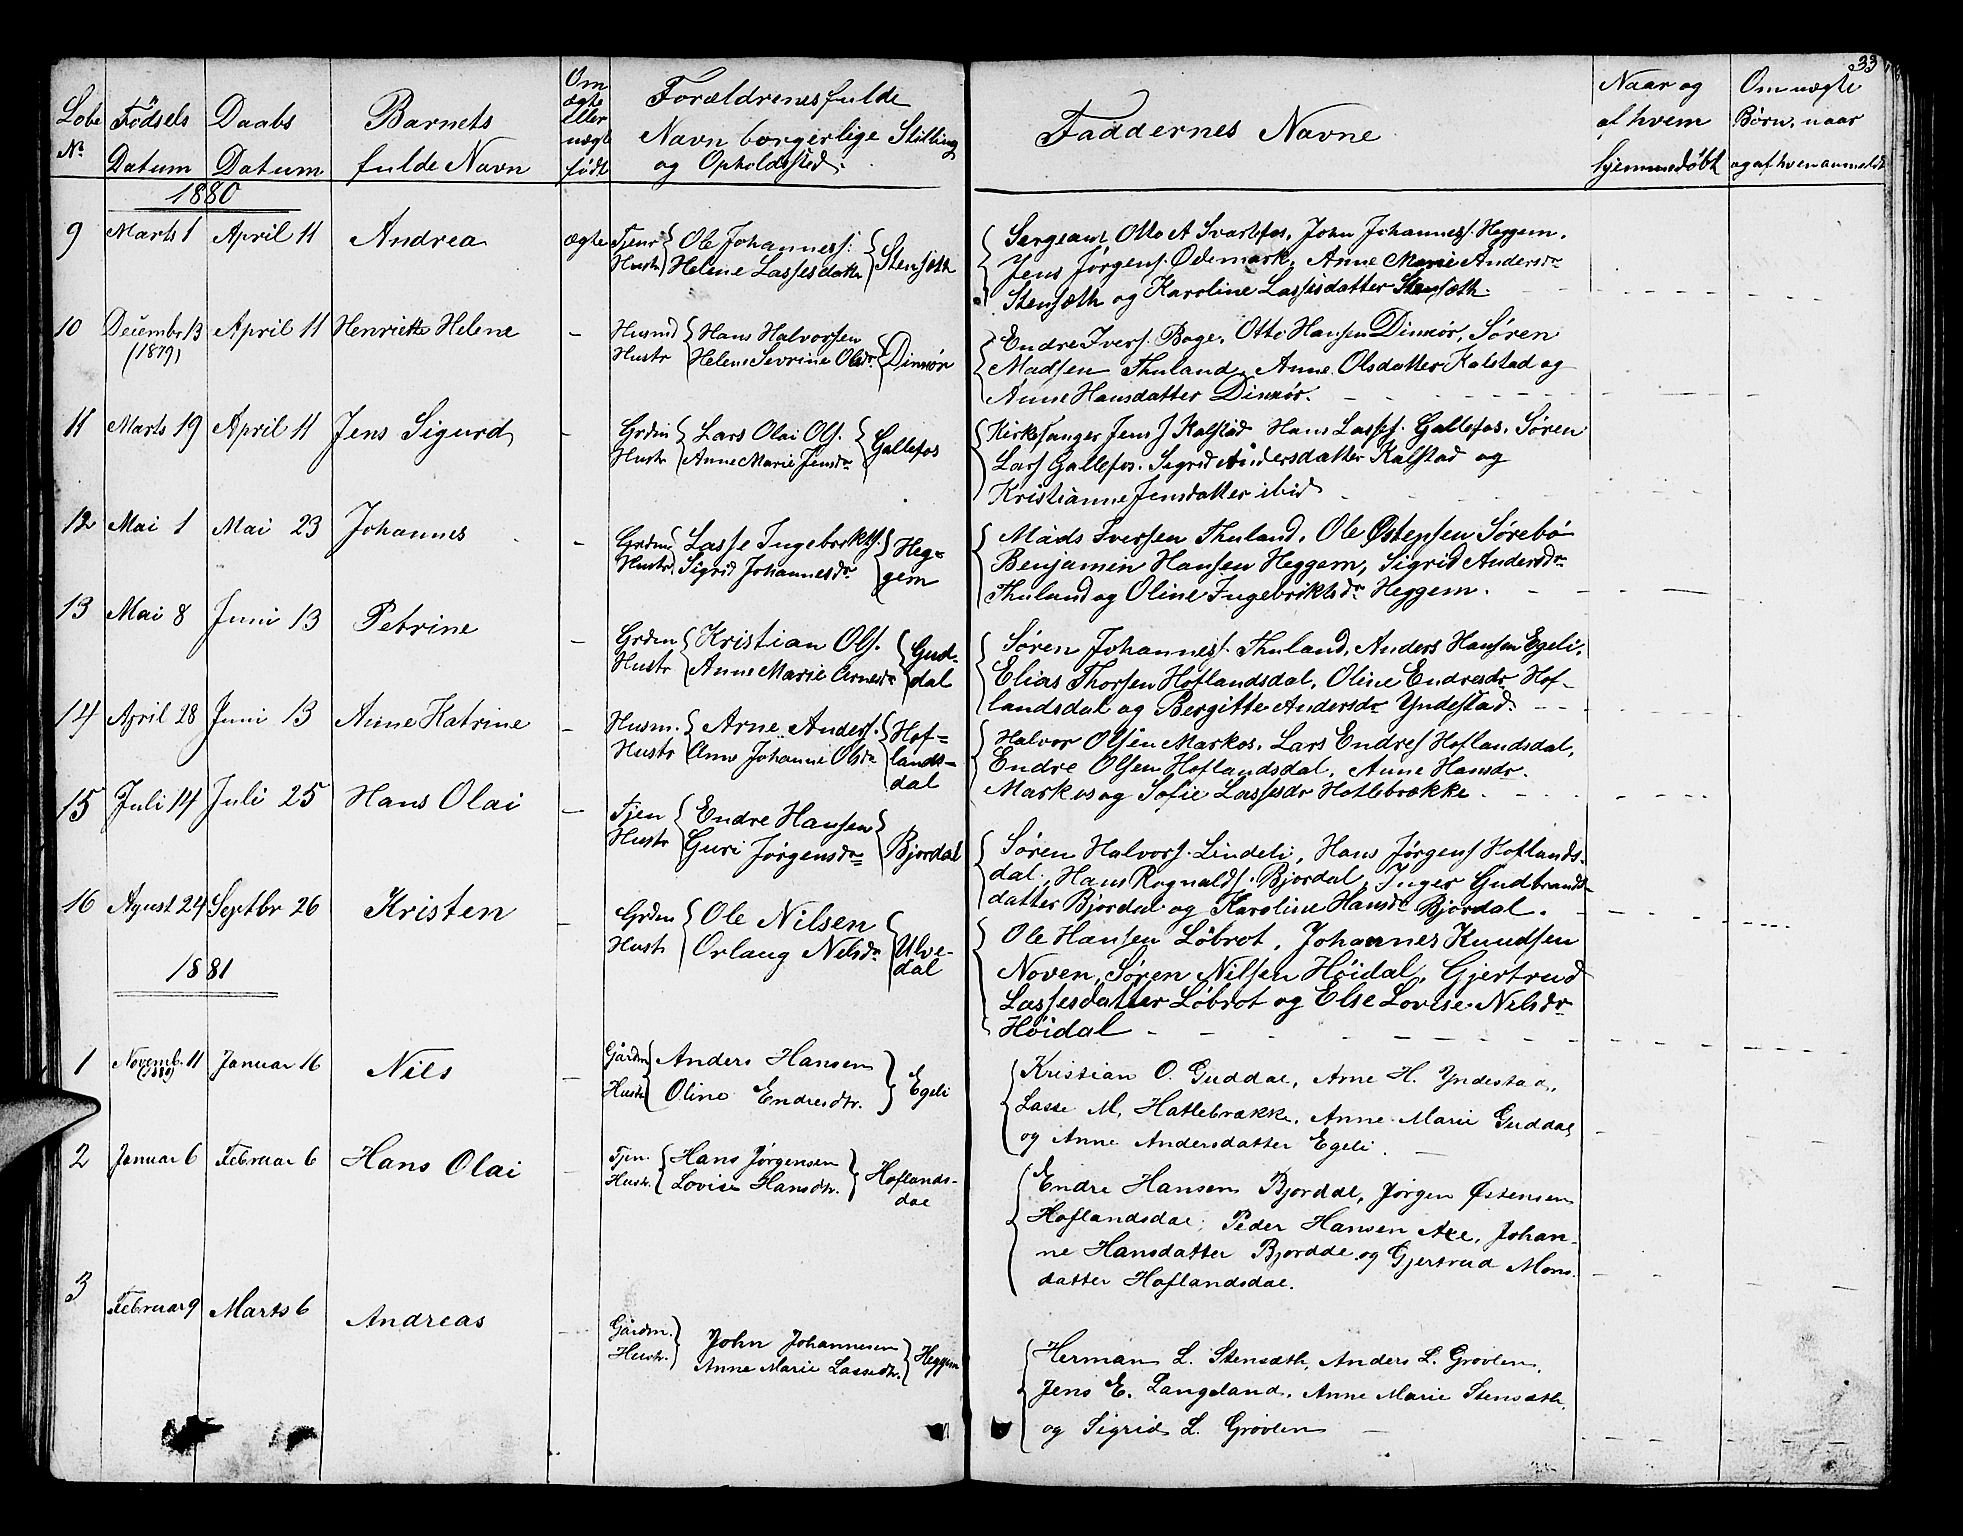 33
Løbe Nr. Fødsels Datum Daabs Datum Barnets fulde Navn Om ægte eller uægte født Forældrenes fulde Navn borgerlige Stilling og Opholdssted. Faddernes Navne Naar og af hvem hjemmedøbt Om uægte Børn, naar og af hvem anmeldt
1880
9 Marts 1 April 11 Andrea ægte Tjener Ole Johanness. Stensæth
Hustr Helene Lassesdatter
Sergeant Otto A Svartefos, John Johanness. Heggem,
Jens Jørgens. Ødemark, Anne Marie Andersdr
Stensæth og Karoline Lassesdatter Stensæth.
10 December 13 (1879) April 11 Henriette Helene - Husmd Hans Halvorsen Dimmør
Hustr Helene Sevrine Olsdr.
Endre Ivers. Boge, Otto Hansen Dimmør, Søren
Madsen Thuland, Anne Olsdatter Kalstad og
Anne Hansdatter Dimmør.
11 Marts 19 April 11 Jens Sigurd - Grdm Lars Olai Ols. Gallefos
Hustr Anne Marie Jensdr
Kirkesanger Jens J Kalstad Hans Lasses. Gallefos, Søren
Lars Gallefos. Sigrid Andersdatter Kalstad og
Kristianne Jensdatter ibid
12 Mai 1 Mai 23 Johannes - Grdm Lasse Ingebrikts. Heg=
Hustr. Sigrid Johannesdr. gem
Mads Iversen Thuland, Ole Østensen Sørebø
Benjamin Hansen Heggem, Sigrid Andersdr
Thuland og Oline Ingebriktsdr Heggem.
13 Mai 8 Juni 13 Petrine - Grdm Kristian Ols. Gud-
Hustr Anne Marie Arnesdr dal
Søren Johanness. Thuland, Anders Hansen Egeli,
Elias Thorsen Hoflandsdal, Oline Endresdr Hof-
landsdal og Bergitte Andersdr Yndestad.
14 April 28 Juni 13 Anne Katrine - Husm. Arne Anders. Hof=
Hustr Anne Johanne Olsdr lands=
dal
Halvor Olsen Markos, Lars Endres Hoflandsdal,
Endre Olsen Hoflandsdal, Anne Hansdr.
Markos og Sofie Lassesdr Hatlebrække.
15 Juli 14 Juli 25 Hans Olai - Tjen Endre Hansen Bjordal
Hustr Guri Jørgensdr
Søren Halvors. Lindeli, Hans Jørgens Hoflands-
dal, Hans Rognalds. Bjordal, Inger Gudbrands-
datter Bjordal og Karoline Hansdr Bjordal.
16 Agust 24 Septbr 26 Kristen - Grdm Ole Nilsen Ulve-
Hustr Orlaug Nelsdr dal
Ole Hansen Løbrot, Johannes Knudsen
Noven, Søren Nilsen Høidal, Gjertrud
Lassesdatter Løbrot og Else Lovise Nelsdr
Høidal
1881
1 Novemb. 11 (1880) Januar 16 Nils - Gårdm Anders Hansen Egeli
Hustr. Oline Endresdtr.
Kristian O. Guddal, Arne H. Yndestad,
Lasse M. Hatlebrække, Anne Marie Guddal
og Anne Andersdatter Egeli.
2 Januar 6 Februar 6 Hans Olai - Tjen. Hans Jørgensen Hoflands-
Hustr. Lovise Hansdtr. dal
Endre Hansen Bjordal, Jørgen Østensen
Hoflandsdal, Peder Hansen Aae, Johan-
ne Hansdatter Bjordal og Gjertrud Mons-
datter Hoflandsdal.
3 Februar 9 Marts 6 Andreas - Gårdm. John Johannesen Heggem
Hustr. Anne Marie Lassedtr.
Herman L. Stensæth, Anders L. Grøvlen,
Jens E. Langeland, Anne Marie Stensæth,
og Sigrid L. Grøvlen